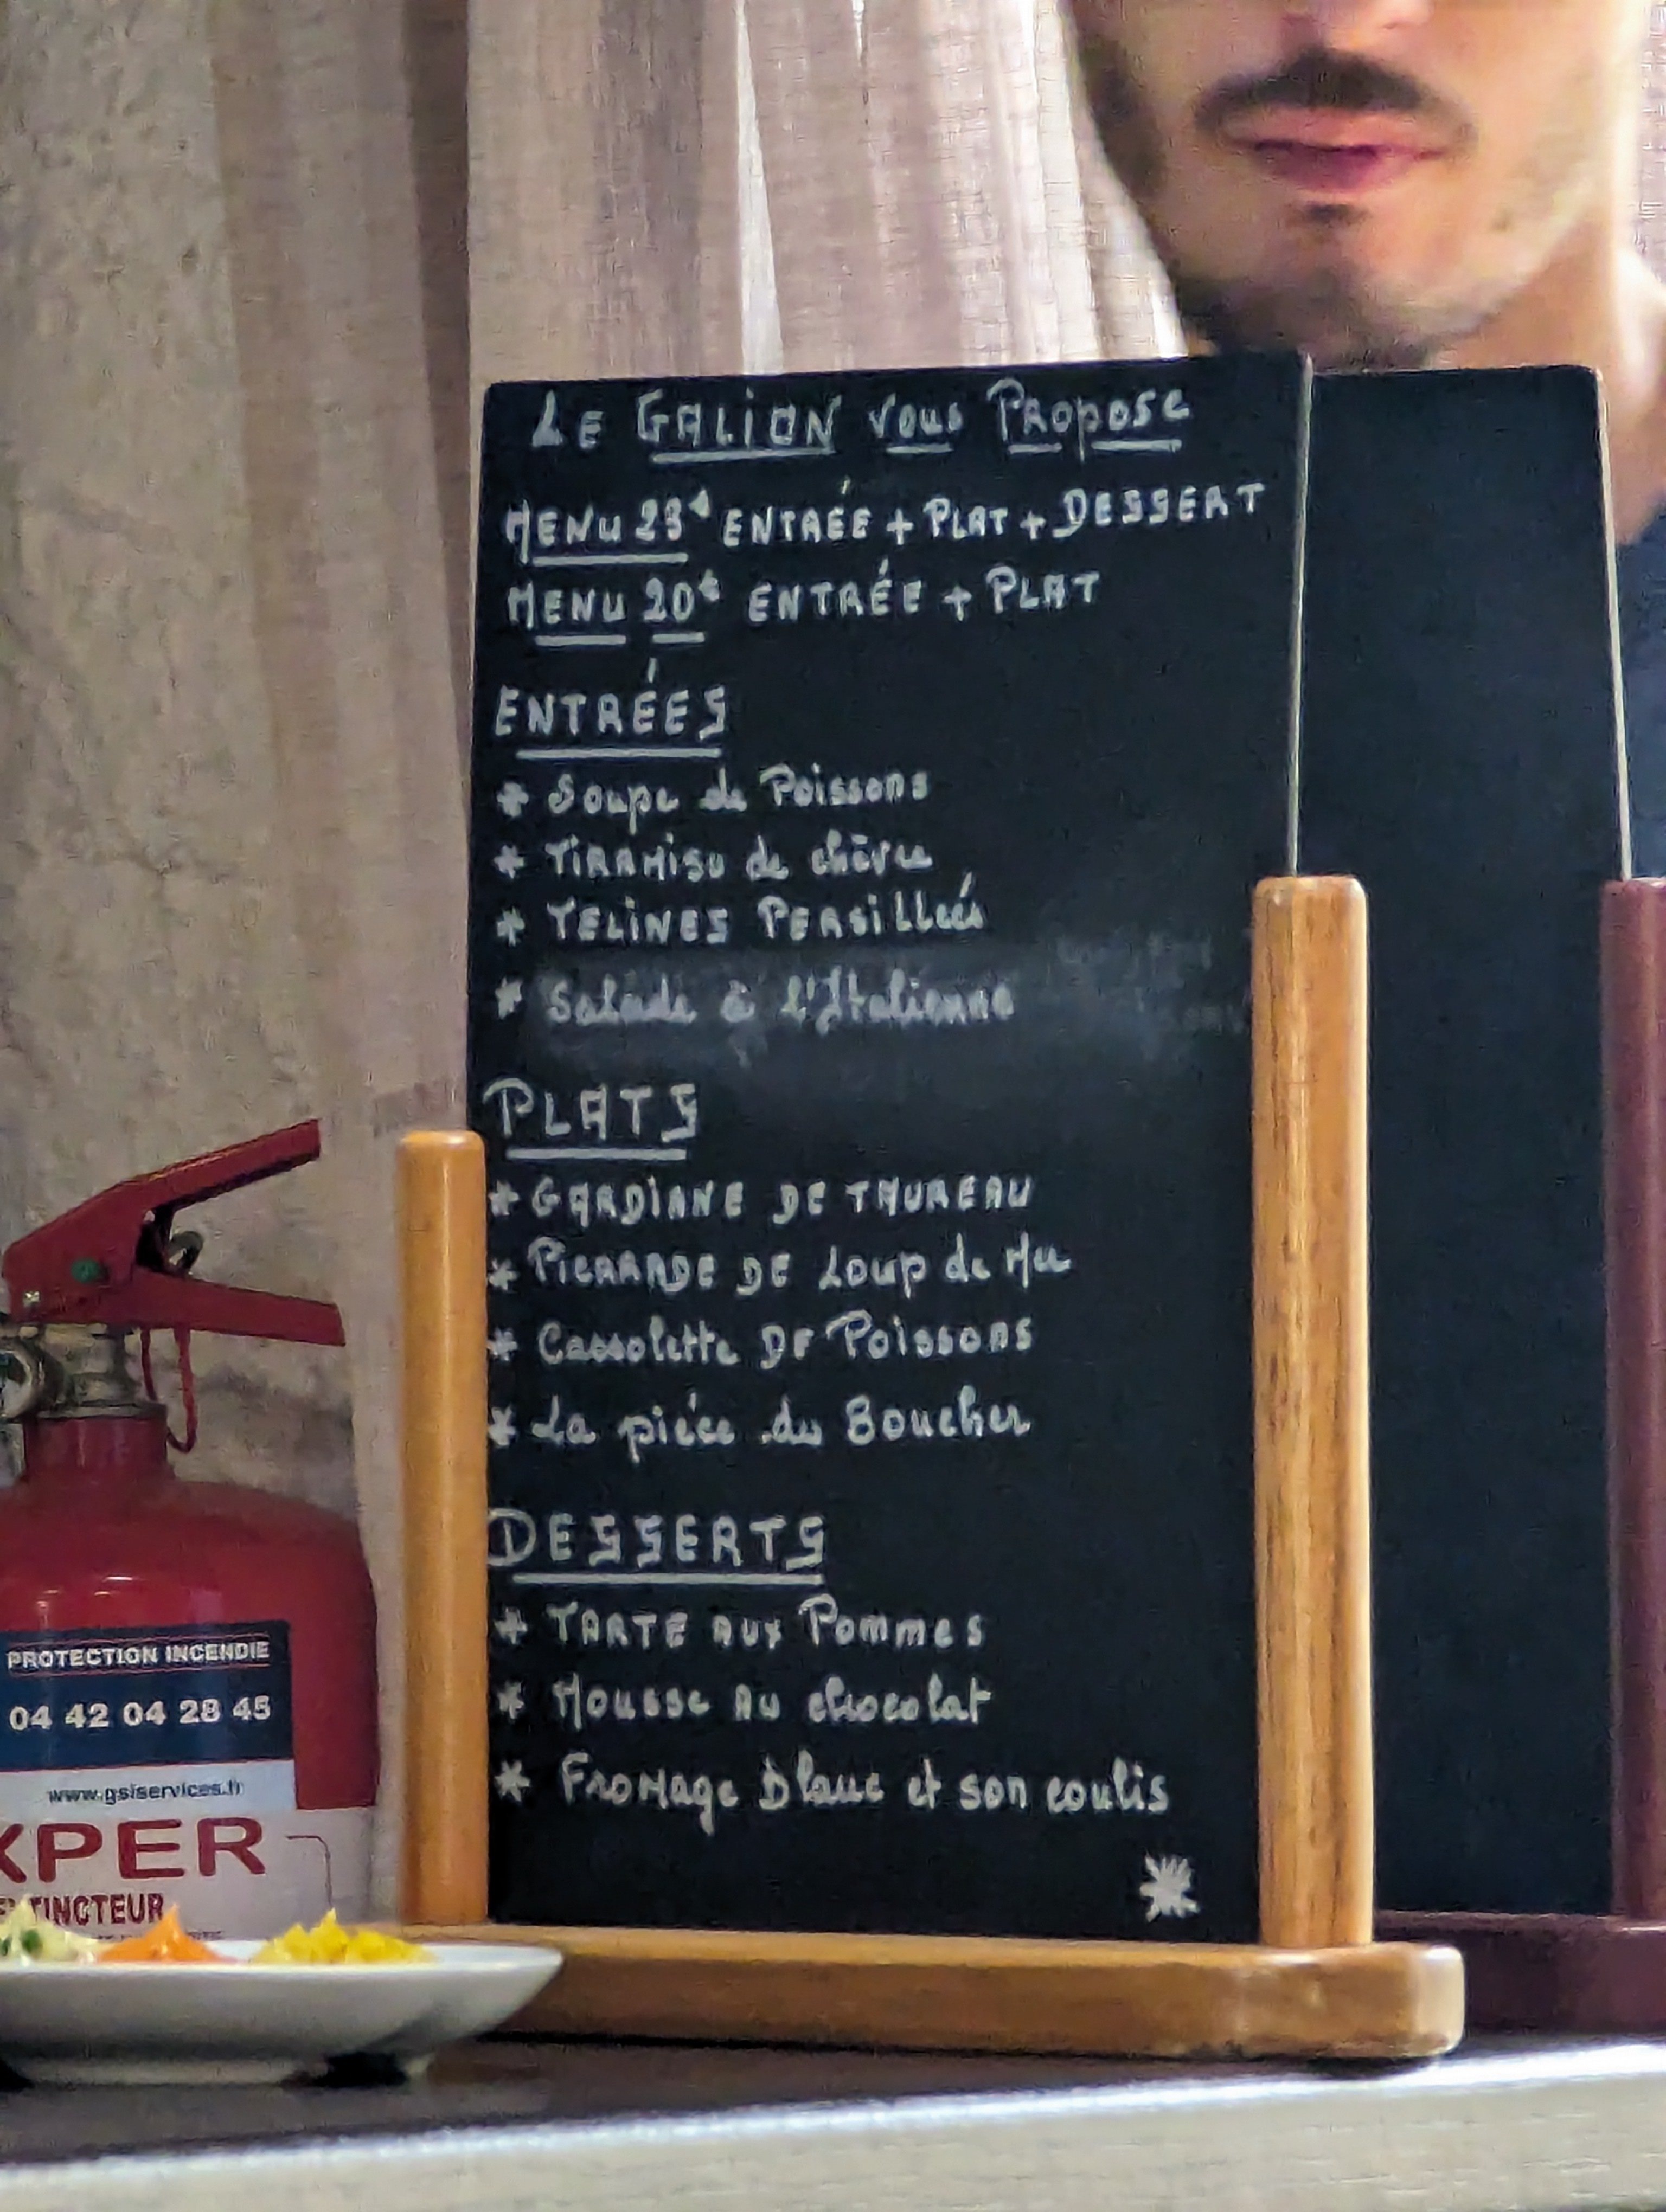 LE GALION vous Propose
MENU 23€ ENTRÉE + PLAT + DESSERT
MENU 20€ ENTRÉE + PLAT
ENTRÉES
* Soupe de Poissons
* TIRAMISU de chèvre
* TELINES PERSILLEES
* Salade à l'Italienne
PLATS
* GARDIANE DE TAUREAU
* PICARADE DE Loup de Mer
* Cassolette DE Poissons
* La pièce du Boucher
DESSERTS
* TARTE AUX Pommes
* Mousse AU chocolat
* FROMAGE blanc et son coulis
PROTECTION INCENDIE
04 42 04 28 45
www.gsiservices.fr
XPER
EXTINCTEUR